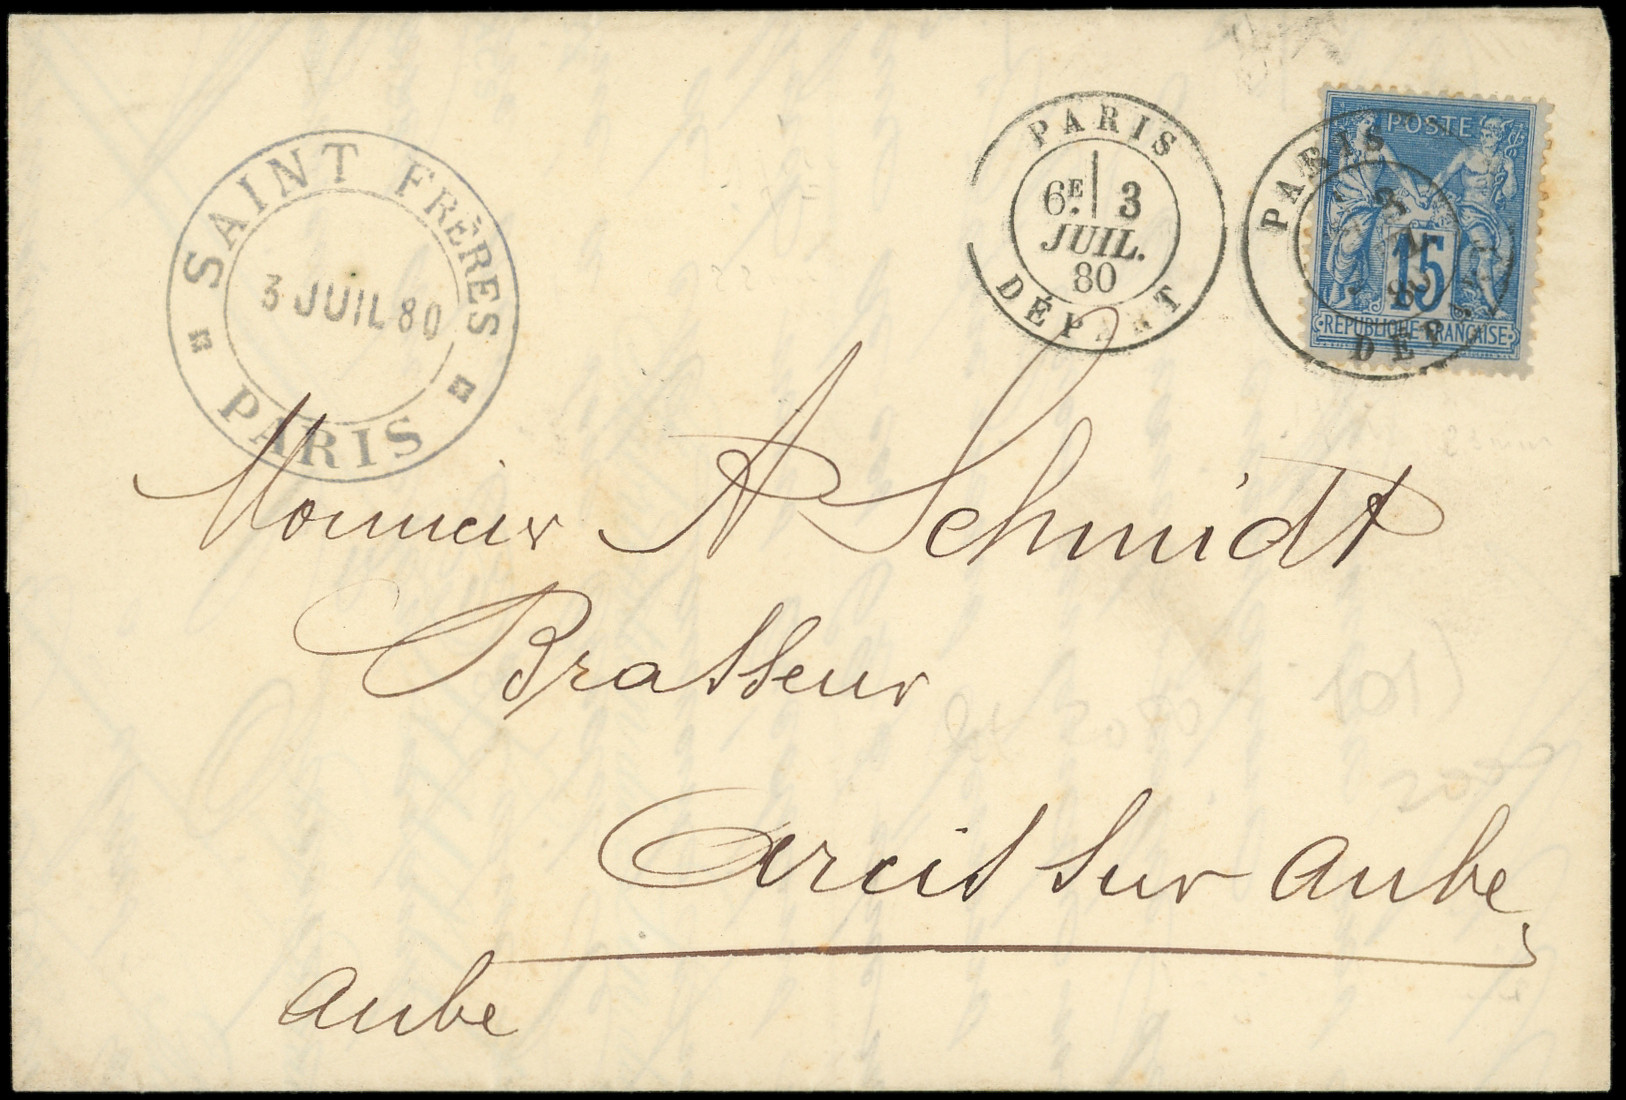 SAINT FRÈRES
3 JUIL 80
PARIS
PARIS
6E 3
JUIL.
80
DÉPART
PARIS
DÉPART
POSTE
15
RÉPUBLIQUE FRANÇAISE
Monsieur A Schmidt
Brasseur
Arcis sur Aube
Aube